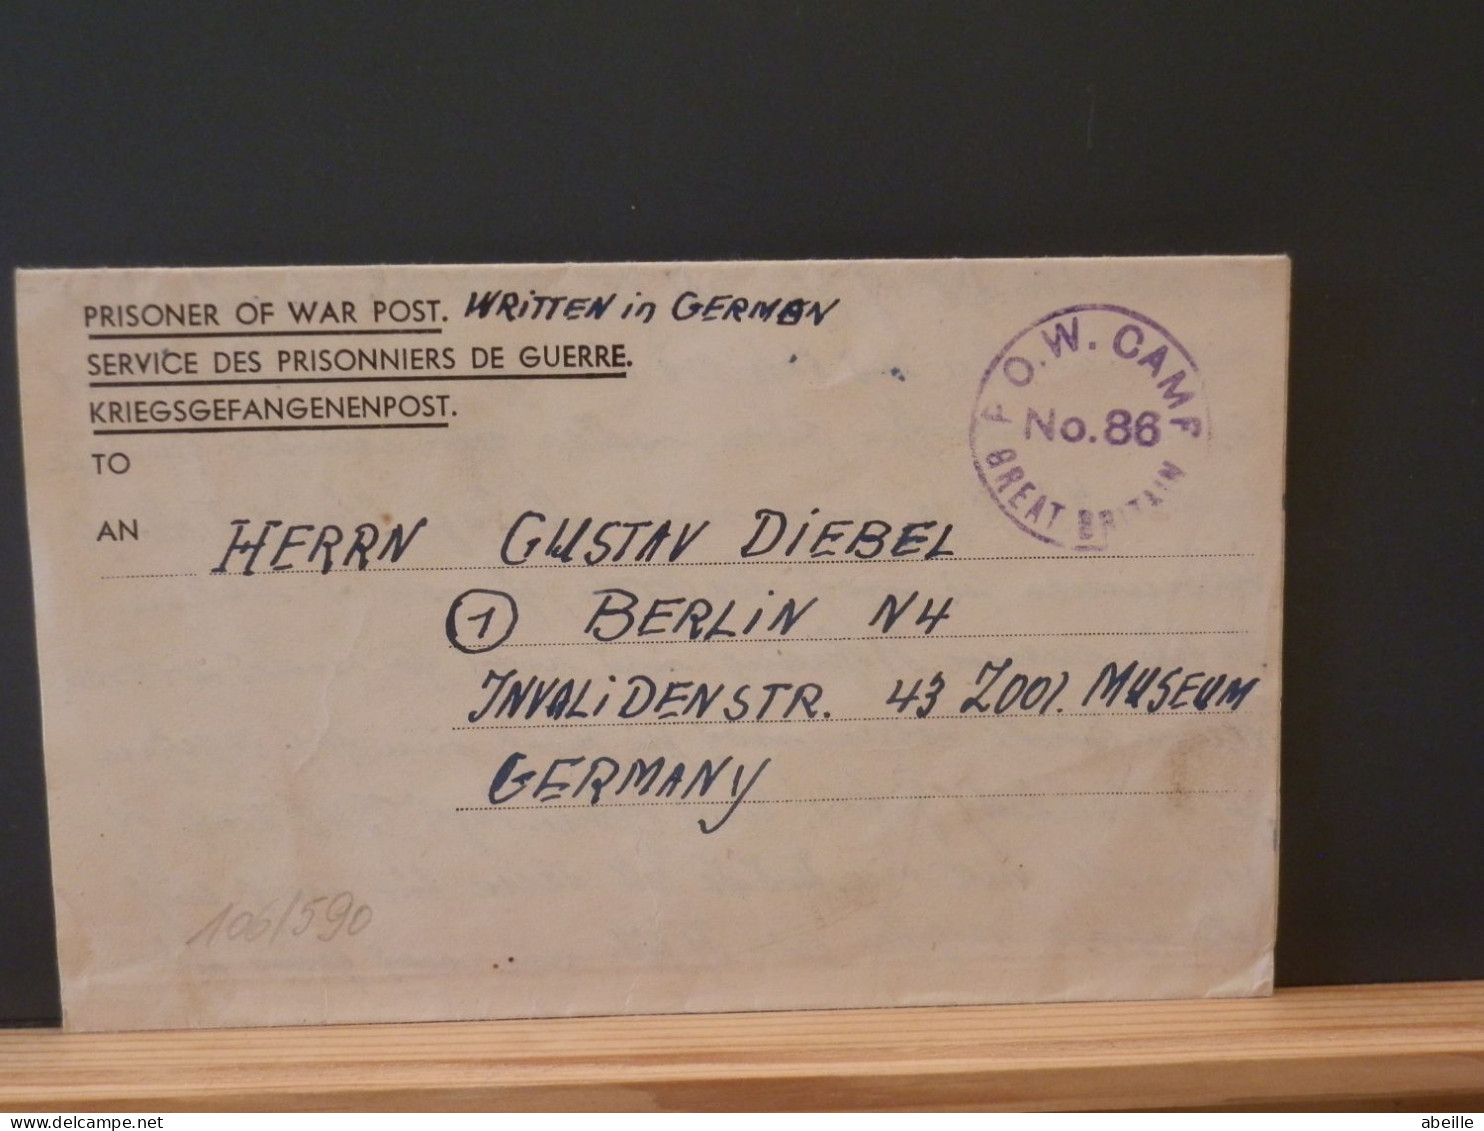 PRISONER OF WAR POST. WRITTEN in GERMAN
SERVICE DES PRISONNIERS DE GUERRE.
KRIEGSGEFANGENENPOST.
P.O.W. CAMP
No. 86
GREAT BRITAIN
TO
AN HERRN GUSTAV DIEBEL
1 BERLIN N4
INVALIDENSTR. 43 ZOOL. MUSEUM
GERMANY
106/590
abeille